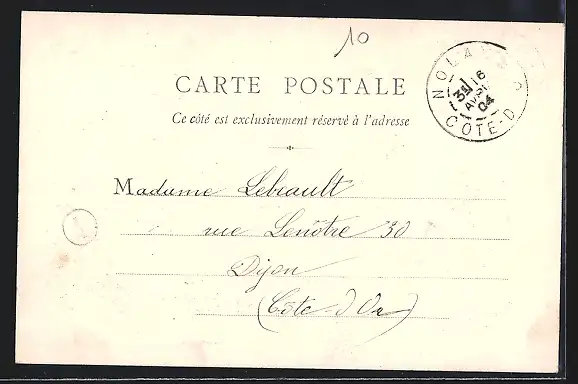 10
CARTE POSTALE
Ce côté est exclusivement réservé à l'adresse
NOLAY
3E 16
AVRIL
04
COTE-D
Madame Lebrault
rue Lenôtre 30
Dijon
(Côte-d'Or)